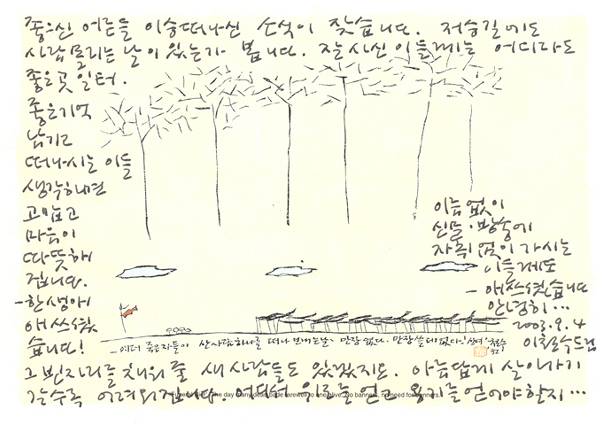 좋으신 어른들 이승떠나신 소식이 잦습니다. 저승길에도
사람 몰리는 날이 있는가 봅니다. 잘 사신 이들께는 어디라도
좋은곳 일터.
좋은기억
남기고
떠나시는 이들
생각하면
고맙고
마음이
따뜻해
집니다.
-한생애
애쓰셨
습니다!
이름 없이
신문·방송에
자취 없이 가시는
이들께도
- 애쓰셨습니다
안녕히...
2003.9.4
이철수드림
- 이미 죽은자들이 산사람하나를 떠나 보내는날. 만장 없다. 만장 쓸 데 없다.
그 빈자리를 채워 줄 새 사람들도 있겠지요. 아름답게 살아가기
갈수록 어려워집니다. 어디서 위로를 얻고 용기를 얻어야할지...